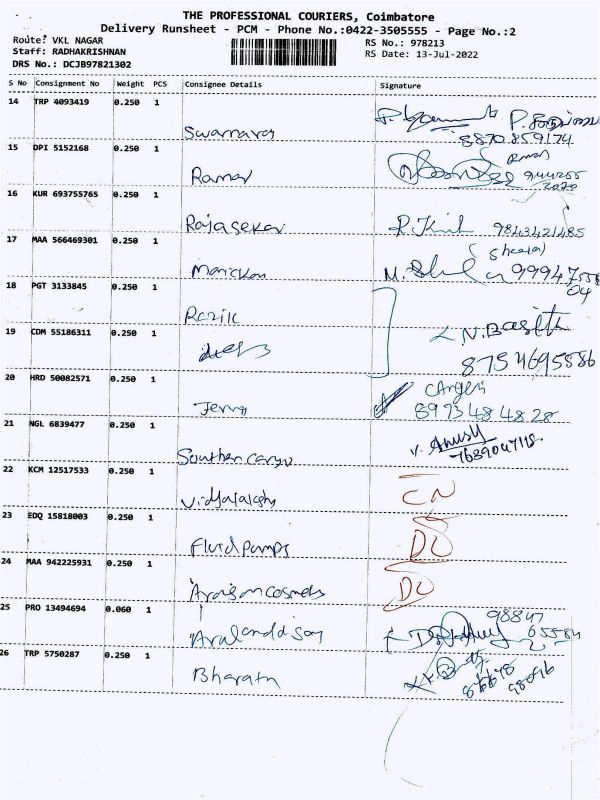 THE PROFESSIONAL COURIERS, Coimbatore
Delivery Runsheet - PCM - Phone No.:0422-3505555 - Page No.:2
Route: VKL NAGAR
RS No.: 978213
Staff: RADHAKRISHNAN
RS Date: 13-Jul-2022
DRS No.: DCJB97821302
S No Consignment No Weight PCS Consignee Details Signature
14 TRP 4093419 0.250 1
8870859174
15 DPI 5152168 0.250 1
Raman
16 KUR 693755765 0.250 1
Rajasekar 9843421485
17 MAA 566469301 0.250 1
Manickam
18 PGT 3133845 0.250 1
Razik
N. Basith
19 CDM 55186311 0.250 1
8754695586
20 HRD 50082571 0.250 1
Jerry 8973484828
21 NGL 6839477 0.250 1
V. Anusy
Southern cargo 7639047118
22 KCM 12517533 0.250 1
CN
23 EDQ 15818003 0.250 1
Fluid pumps DC
24 MAA 942225931 0.250 1
DC
25 PRO 13494694 0.060 1
98847
65584
26 TRP 5750287 0.250 1
Bharath